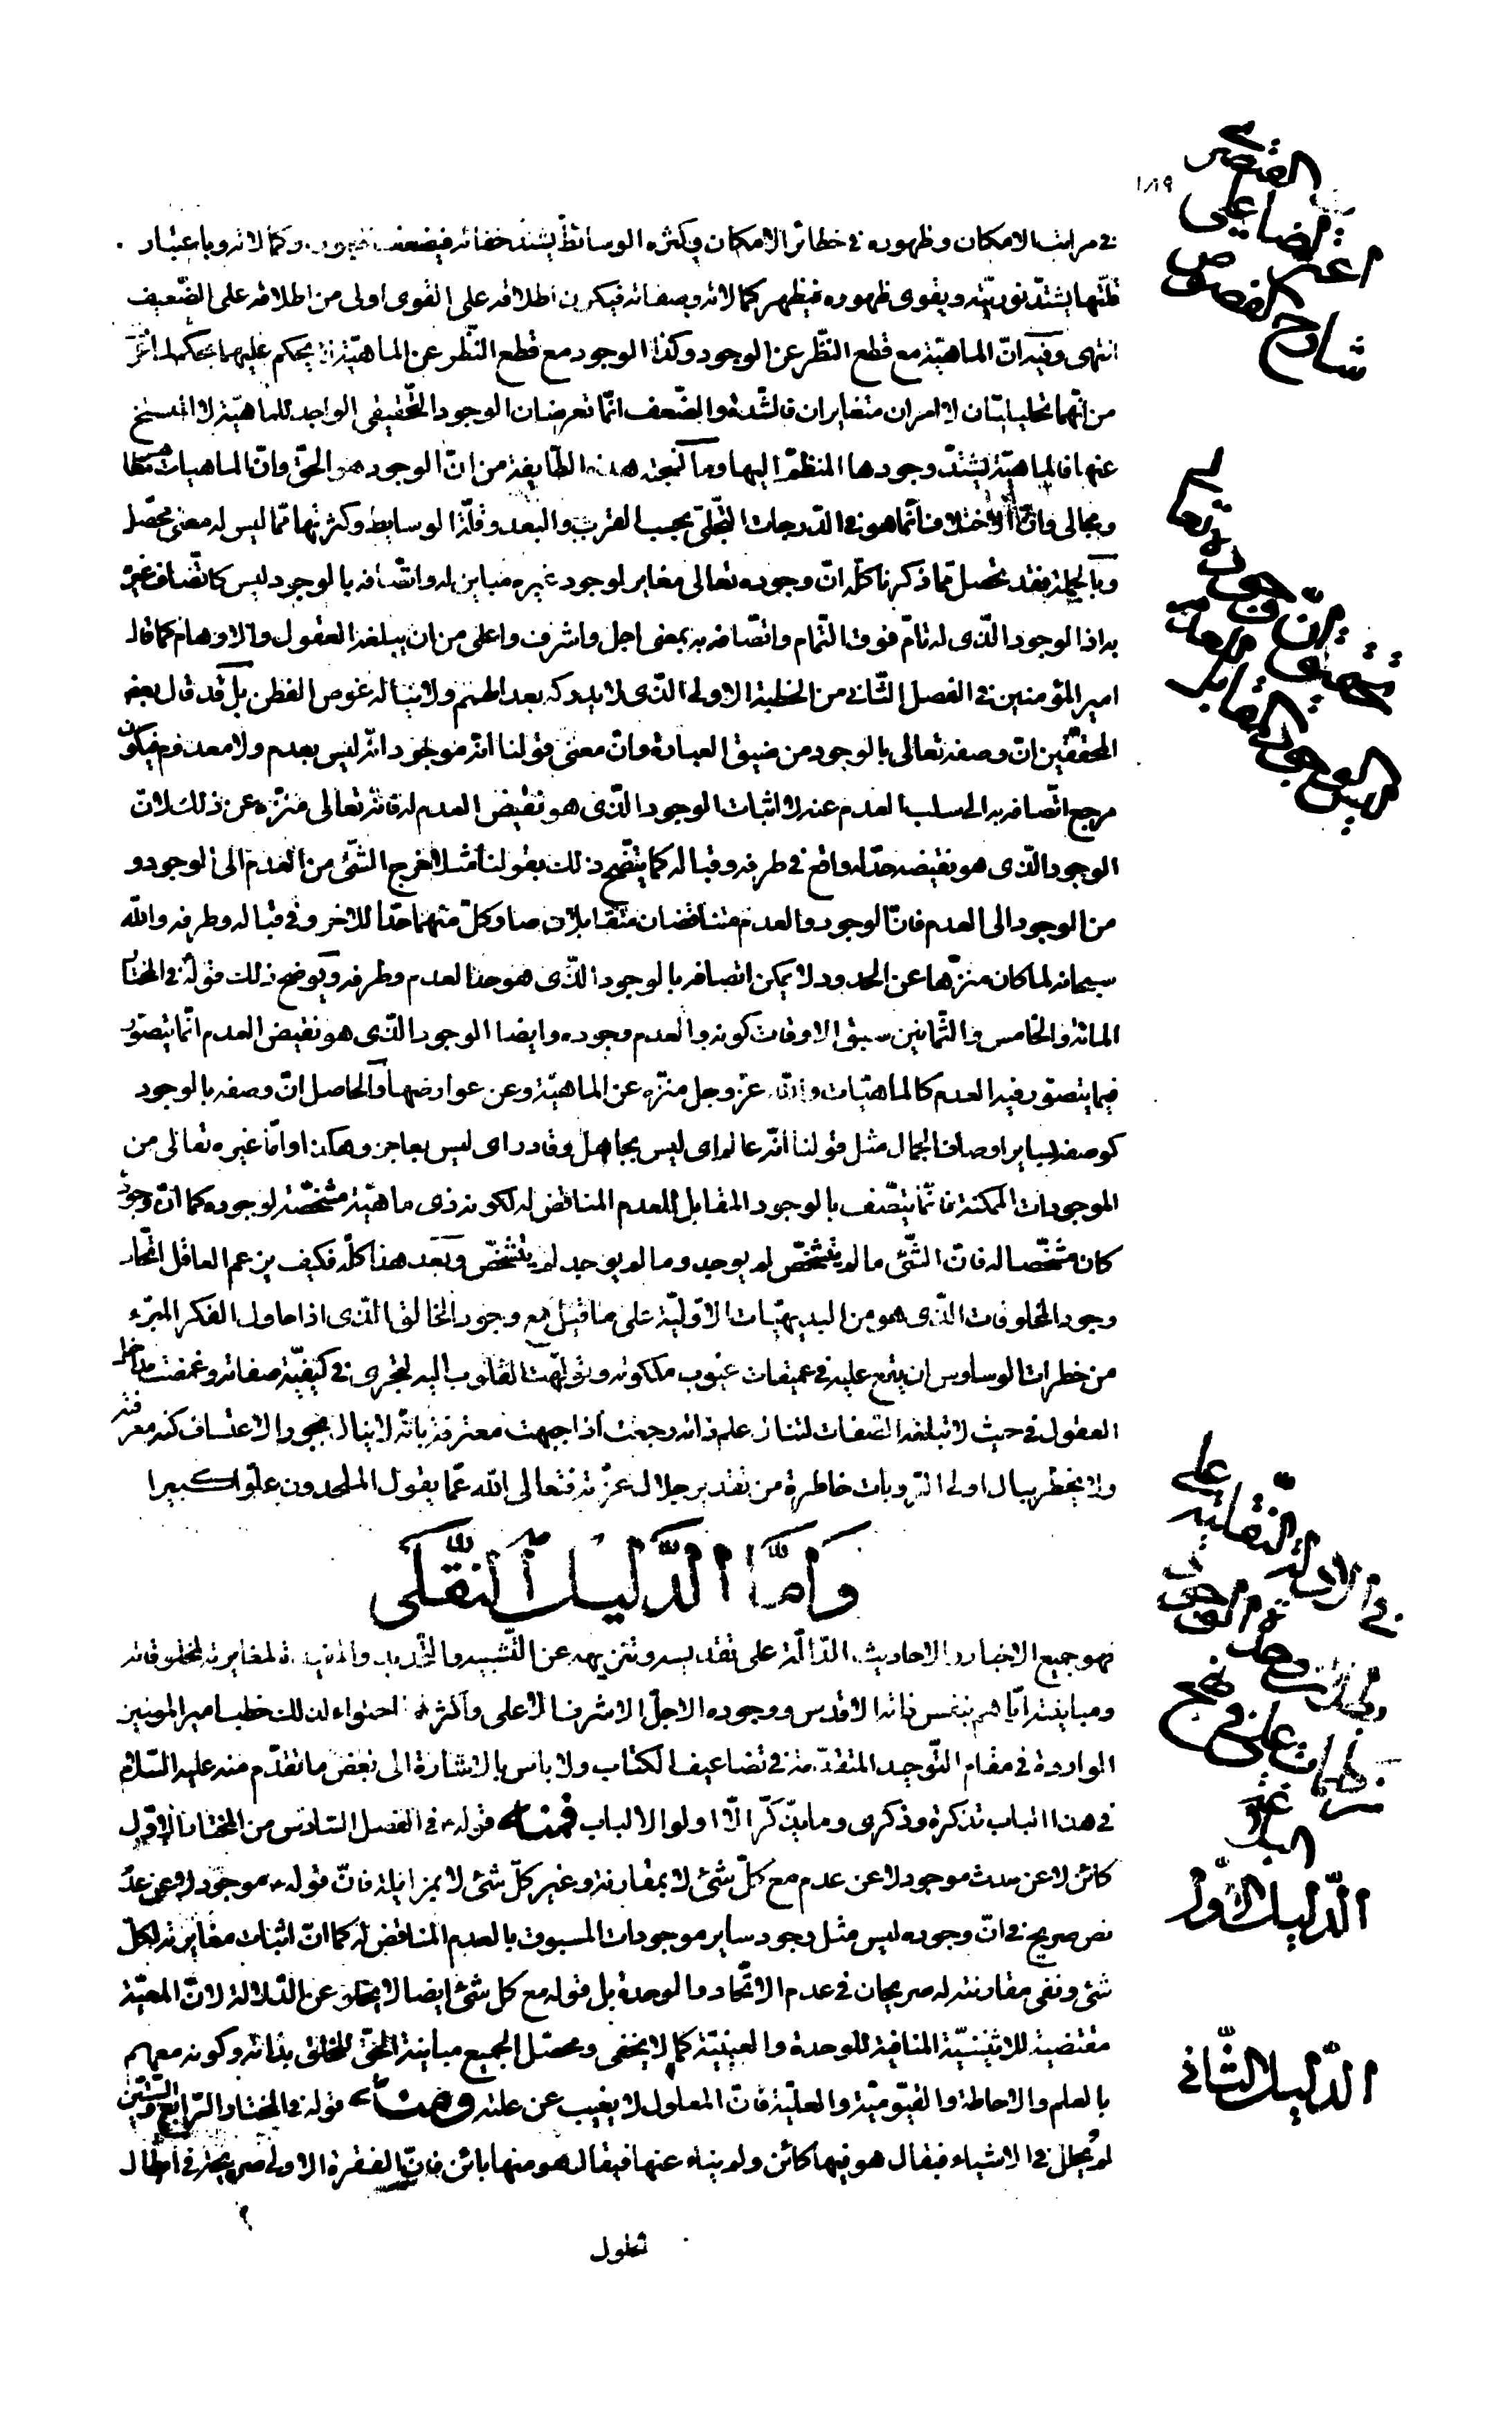 في مراتب الامكان وظهوره في خطائر الامكان وكثرة الوسائط يشتد خفائه فيضعف ظهوره وكمالاته وباعتبار
قلتها يشتد نوريته ويقوى ظهوره فيظهر كمالاته وصفاته فيكون اطلاقه على القوى اولى من اطلاقه على الضعيف
انتهى وفيه ان الماهية مع قطع النظر عن الوجود وكذا الوجود مع قطع النظر عن الماهية لا يحكم عليهما بحكم
من انهما تحليليتان لا امران متغايران فالشدة والضعف انما تعرضان الوجود الحقيقي الواجد للماهية لا المنسلخ
عنها فالماهية يشتد وجودها المنظم اليها وما هذه الطايفة من ان الوجود هو الحق وان الماهيات
ومجالي وان الاختلاف انما هو في الدرجات التجلي بحسب القرب والبعد وقلة الوسايط وكثرتها مما ليس له معنى محصل
وبالجملة فقد تحصل مما ذكرنا كله ان وجوده تعالى مغاير لوجود غيره مباين له واتصافه بالوجود ليس كاتصاف غيره
به اذ الوجود الذي له تام فوق التمام واتصافه به بمعنى اجل واشرف واعلى من ان يبلغه العقول والاوهام كما قال
امير المؤمنين في الفصل الثاني من الخطبة الاولى الذي لا يدركه بعد الهمم ولا يناله غوص الفطن بل قد قال بعض
المحققين ان وصفه تعالى بالوجود من ضيق العبارة وان معنى قولنا انه موجود انه ليس بعدم ولا معدوم فيكون
مرجع اتصافه به الى سلب العدم عنه لا اثبات الوجود الذي هو نقيض العدم له فانه تعالى منزه عن ذلك لان
الوجود الذي هو نقيضه حد له واقع في طرفه وقباله كما يتضح ذلك بقولنا مثلا خرج الشئ من العدم الى الوجود و
من الوجود الى العدم فان الوجود والعدم متناقضان متقابلان صار كل منهما حدا للاخر وفي قباله وطرفه والله
سبحانه لما كان منزها عن الحدود لا يمكن اتصافه بالوجود الذي هو حد العدم وطرفه ويوضح ذلك قوله في المختار
المائة والخامس والثمانين سبق الاوقات كونه والعدم وجوده وايضا الوجود الذي هو نقيض العدم انما يتصور
فيما يتصور فيه العدم كالماهيات والله عز وجل منزه عن الماهية وعن عوارضها والحاصل ان وصفه بالوجود
كوصفه بساير اوصاف الجمال مثل قولنا انه عالم اي ليس بجاهل وقادر اي ليس بعاجز وهكذا واما غيره تعالى من
الموجودات الممكنة فانما يتصف بالوجود المقابل للعدم المناقض له لكونه ذي ماهية مشخصة لوجوده كما ان وجوده
كان مشخصا له فان الشئ ما لم يتشخص لم يوجد وما لم يوجد لم يتشخص وبعد هذا كله فكيف يزعم العاقل اتحاد
وجود المخلوقات الذي هو من البديهيات الاولية على ما قيل مع وجود الخالق الذي اذا حاول الفكر المبرء
من خطرات الوساوس ان يقع عليه في عميقات غيوب ملكوته وتولهت القلوب اليه لتجرى في كيفية صفاته وغمضت مداخل
العقول في حيث لا تبلغه الصفات لتنال علم ذاته رجعت اذ اجبهت معترفة بانه لا ينال بجور الاعتساف كنه معرفته
ولا يخطر ببال اولى الرويات خاطرة من تقدير جلال عزته فتعالى الله عما يقول الملحدون علوا كبيرا
وَاَمَّا الدَّليلُ النقَّلى
فهو جميع الاخبار والاحاديث الدالة على تقديسه وتنزيهه عن التشبيه والتحديد والمفيدة لمغايرته لمخلوقاته
ومباينته اياهم بنفس ذاته الاقدس ووجوده الاجل الاشرف الاعلى واكثرها احتواء لذلك خطب امير المؤمنين
الواردة في مقام التوحيد المتقدمة في تضاعيف الكتاب ولا باس بالاشارة الى بعض ما تقدم منه عليه السلام
في هذا الباب تذكرة وذكرى وما يذكر الا اولوا الالباب فمنه قوله في الفصل السادس من المختار الاول
كائن لا عن حدث موجود لا عن عدم مع كل شئ لا بمقارنة وغير كل شئ لا بمزايلة فان قوله موجود لا عن عدم
نص صريح في ان وجوده ليس مثل وجود ساير موجودات المسبوق بالعدم المناقض له كما ان اثبات مغايرته لكل
شئ ونفى مقارنته له صريحان في عدم الاتحاد والوحدة بل قوله مع كل شئ ايضا لا يخلو عن الدلالة لان المعية
مقتضية للاثنينية المنافية للوحدة والعينية كما لا يخفى ومحصل الجميع مباينة الحق للخلق بذاته وكونه معهم
بالعلم والاحاطة والقيومية والعلية فان المعلول لا يغيب عن علته ومنه قوله في المختار الرابع والستين
لم يحلل في الاشياء فيقال هو فيها كائن ولم يناء عنها فيقال هو منها بائن فان الفقرة الاولى صريحة في ابطال
الحلول
١٨٩
القيصري
ايضا على
اعتراض
شارح الفصوص
تحقيق ان وجوده تعالى
ليس الوجود المقابل للعدم
في الادلة النقلية على
الوجود
نهج
الدليل الاول
الدليل الثاني